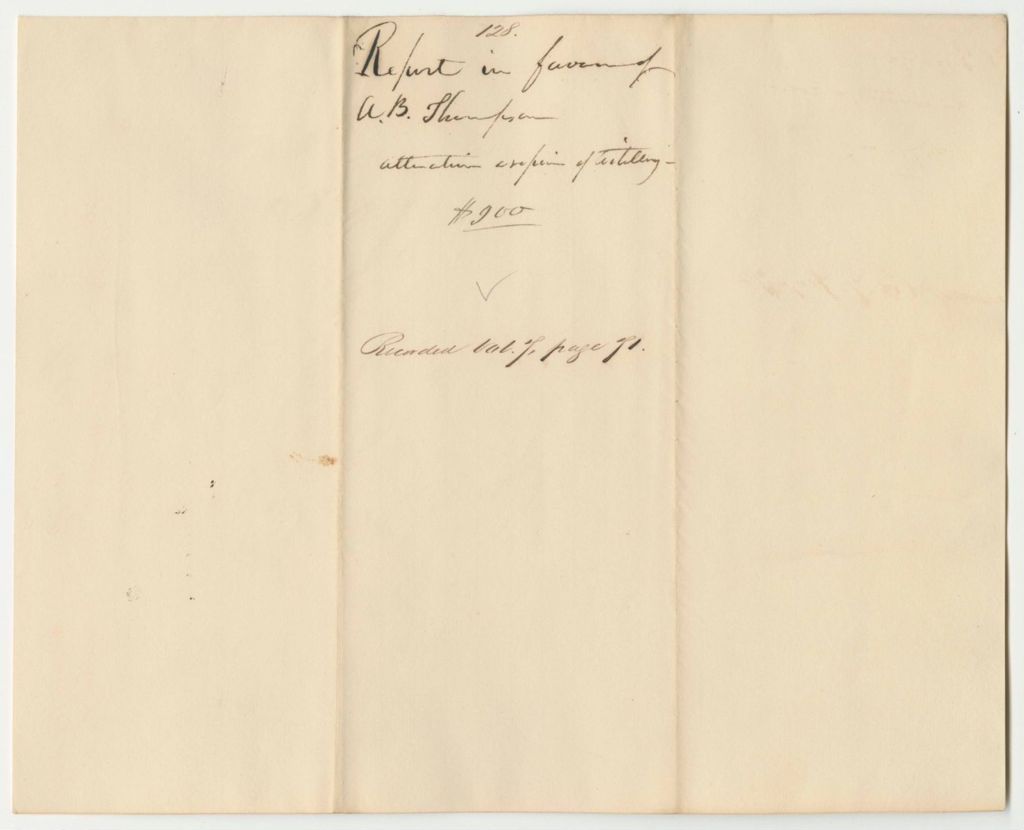 128.
Report in favor of
A. B. Thompson
attention & repairs of Artillery -
$900
Recorded Vol. 7, page 71.